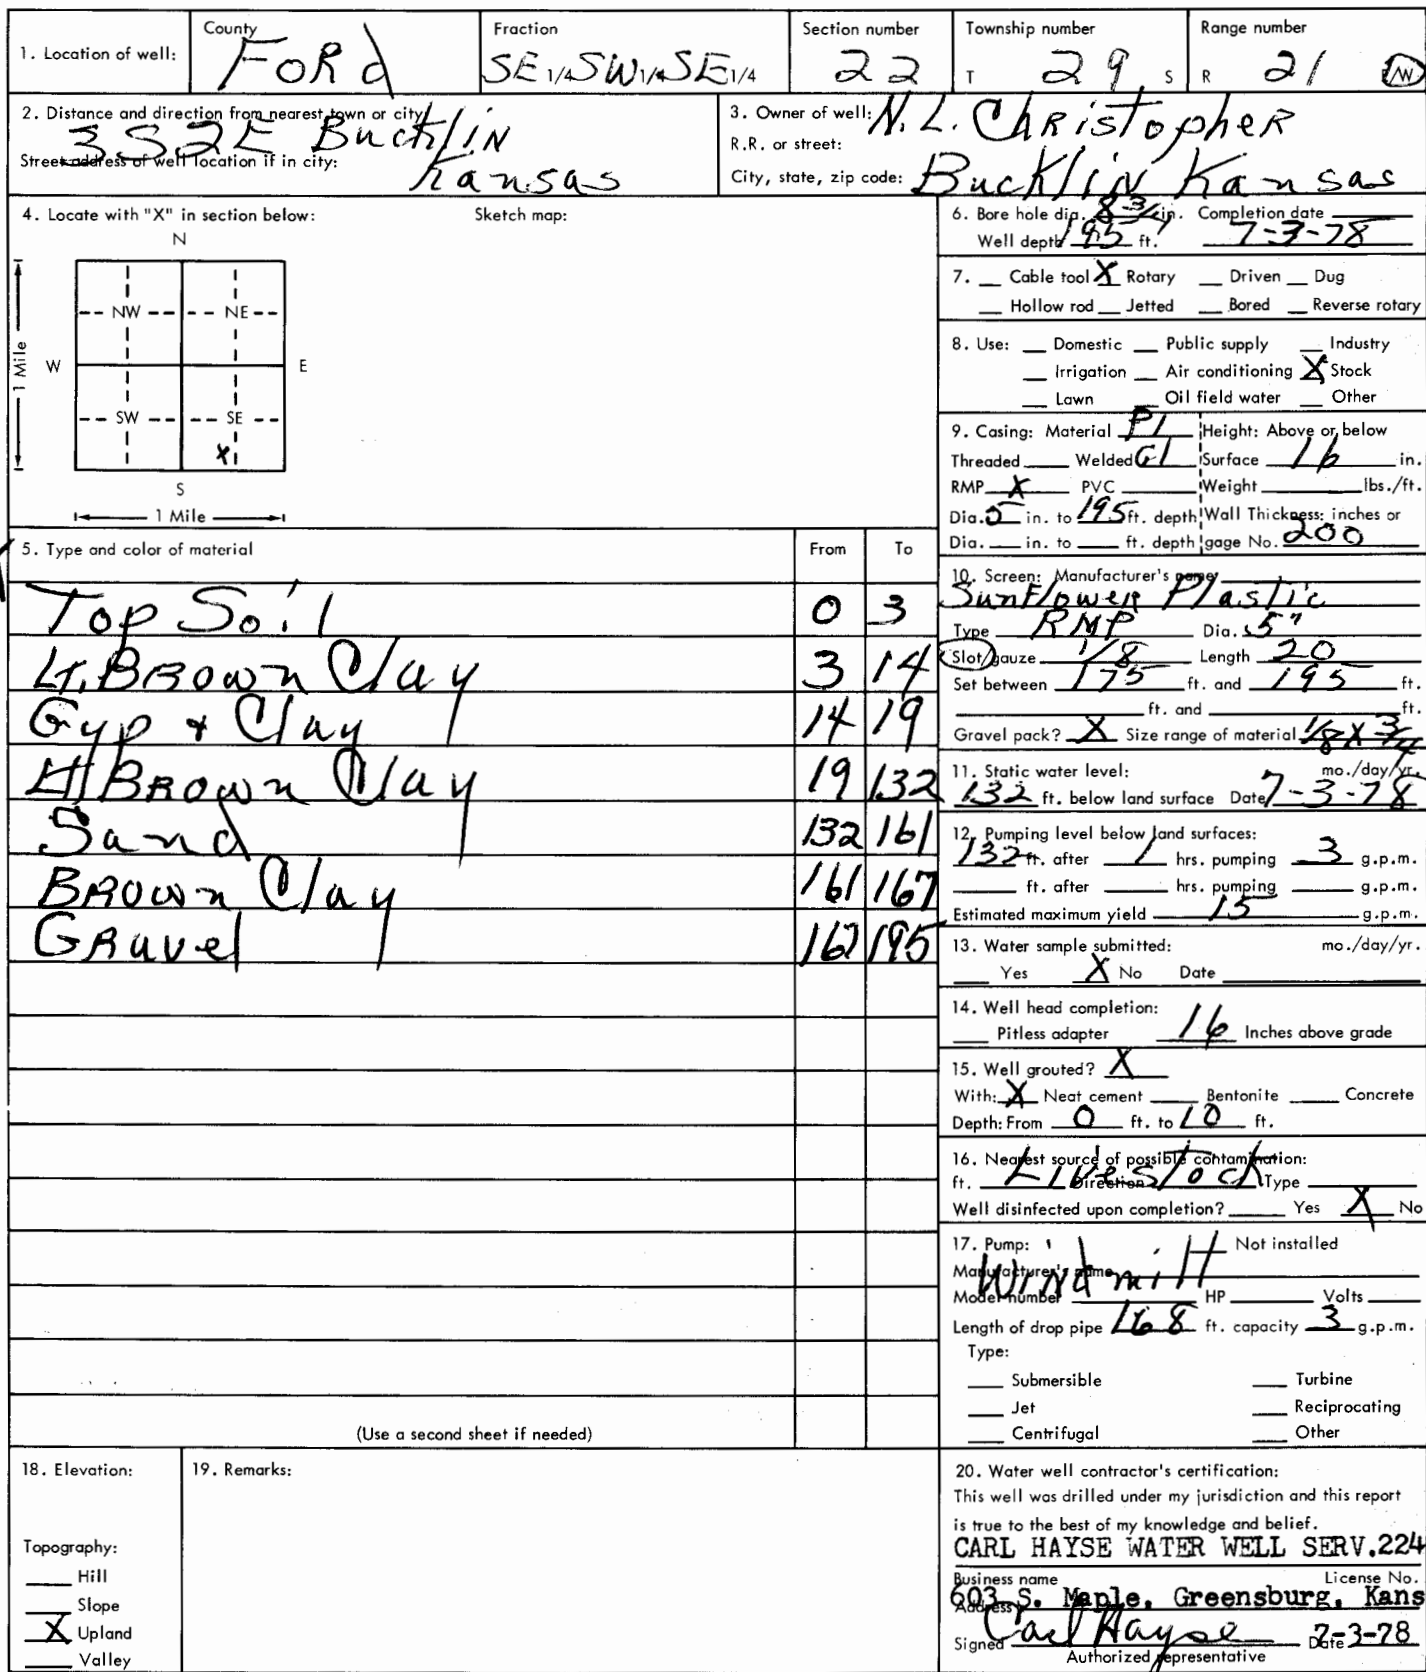 1. Location of well:
County
FORd
Fraction
SE 1/4 SW 1/4 SE 1/4
Section number
22
Township number
T 29 S
Range number
R 21 /W
2. Distance and direction from nearest town or city
3S 2E Bucklin
Street address of well location if in city:
Kansas
3. Owner of well: N.L. Christopher
R.R. or street:
City, state, zip code: Bucklin Kansas
4. Locate with "X" in section below:
Sketch map:
N
NW NE
W E
1 Mile
SW SE
X
S
1 Mile
5. Type and color of material From To
Top Soil 0 3
Lt. Brown Clay 3 14
Gyp + Clay 14 19
Lt Brown Clay 19 132
Sand 132 161
Brown Clay 161 167
Gravel 167 195
(Use a second sheet if needed)
6. Bore hole dia. 8-3/4 in. Completion date
Well depth 195 ft. 7-3-78
7. __ Cable tool X Rotary __ Driven __ Dug
__ Hollow rod __ Jetted __ Bored __ Reverse rotary
8. Use: __ Domestic __ Public supply __ Industry
__ Irrigation __ Air conditioning X Stock
__ Lawn __ Oil field water __ Other
9. Casing: Material Pl Height: Above or below
Threaded ___ Welded Gl Surface 16 in.
RMP X PVC ___ Weight ___ lbs./ft.
Dia. 5 in. to 195 ft. depth Wall Thickness: inches or
Dia. __ in. to __ ft. depth gage No. 200
10. Screen: Manufacturer's name
SunFlower Plastic
Type RMP Dia. 5"
Slot/gauze 1/8 Length 20
Set between 175 ft. and 195 ft.
___ ft. and ___ ft.
Gravel pack? X Size range of material 1/8 X 3/4
11. Static water level: mo./day/yr.
132 ft. below land surface Date 7-3-78
12. Pumping level below land surfaces:
132 ft. after 1 hrs. pumping 3 g.p.m.
___ ft. after ___ hrs. pumping ___ g.p.m.
Estimated maximum yield 15 g.p.m.
13. Water sample submitted: mo./day/yr.
__ Yes X No Date
14. Well head completion:
__ Pitless adapter 16 Inches above grade
15. Well grouted? X
With: X Neat cement ___ Bentonite ___ Concrete
Depth: From 0 ft. to 10 ft.
16. Nearest source of possible contamination:
ft. Livestock Direction Type
Well disinfected upon completion? ___ Yes X No
17. Pump: Not installed
Manufacturer's name Windmill
Model number ___ HP ___ Volts ___
Length of drop pipe 168 ft. capacity 3 g.p.m.
Type:
__ Submersible __ Turbine
__ Jet __ Reciprocating
__ Centrifugal __ Other
18. Elevation:
Topography:
__ Hill
__ Slope
X Upland
__ Valley
19. Remarks:
20. Water well contractor's certification:
This well was drilled under my jurisdiction and this report
is true to the best of my knowledge and belief.
CARL HAYSE WATER WELL SERV. 224
Business name License No.
603 S. Maple, Greensburg, Kans
Address
Signed Carl Hayse Date 7-3-78
Authorized representative